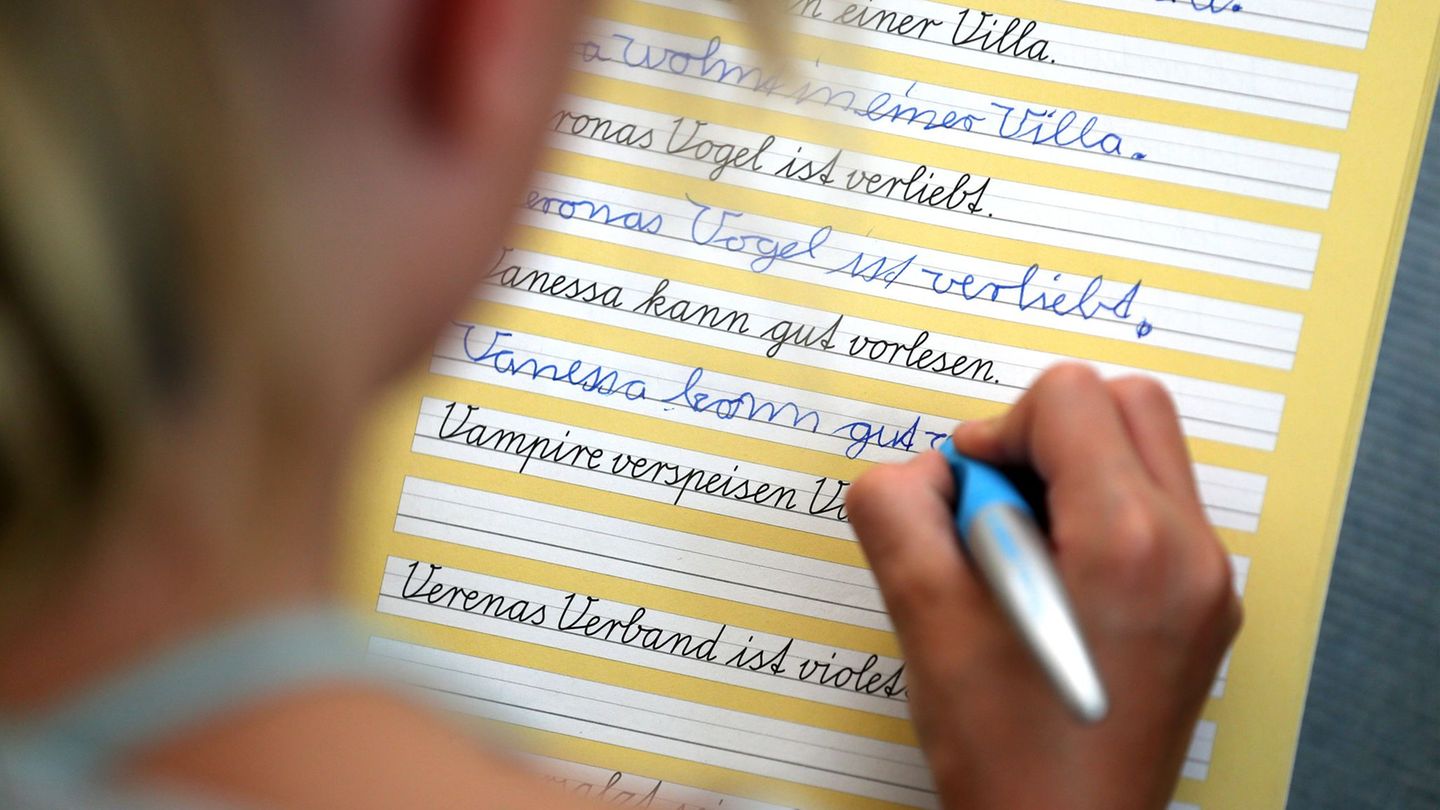 einer Villa.
wohnt in einer Villa.
Vogel ist verliebt.
Vogel ist verliebt.
Vanessa kann gut vorlesen.
Vanessa kann gut
Vampire verspeisen
Verenas Verband ist violett.